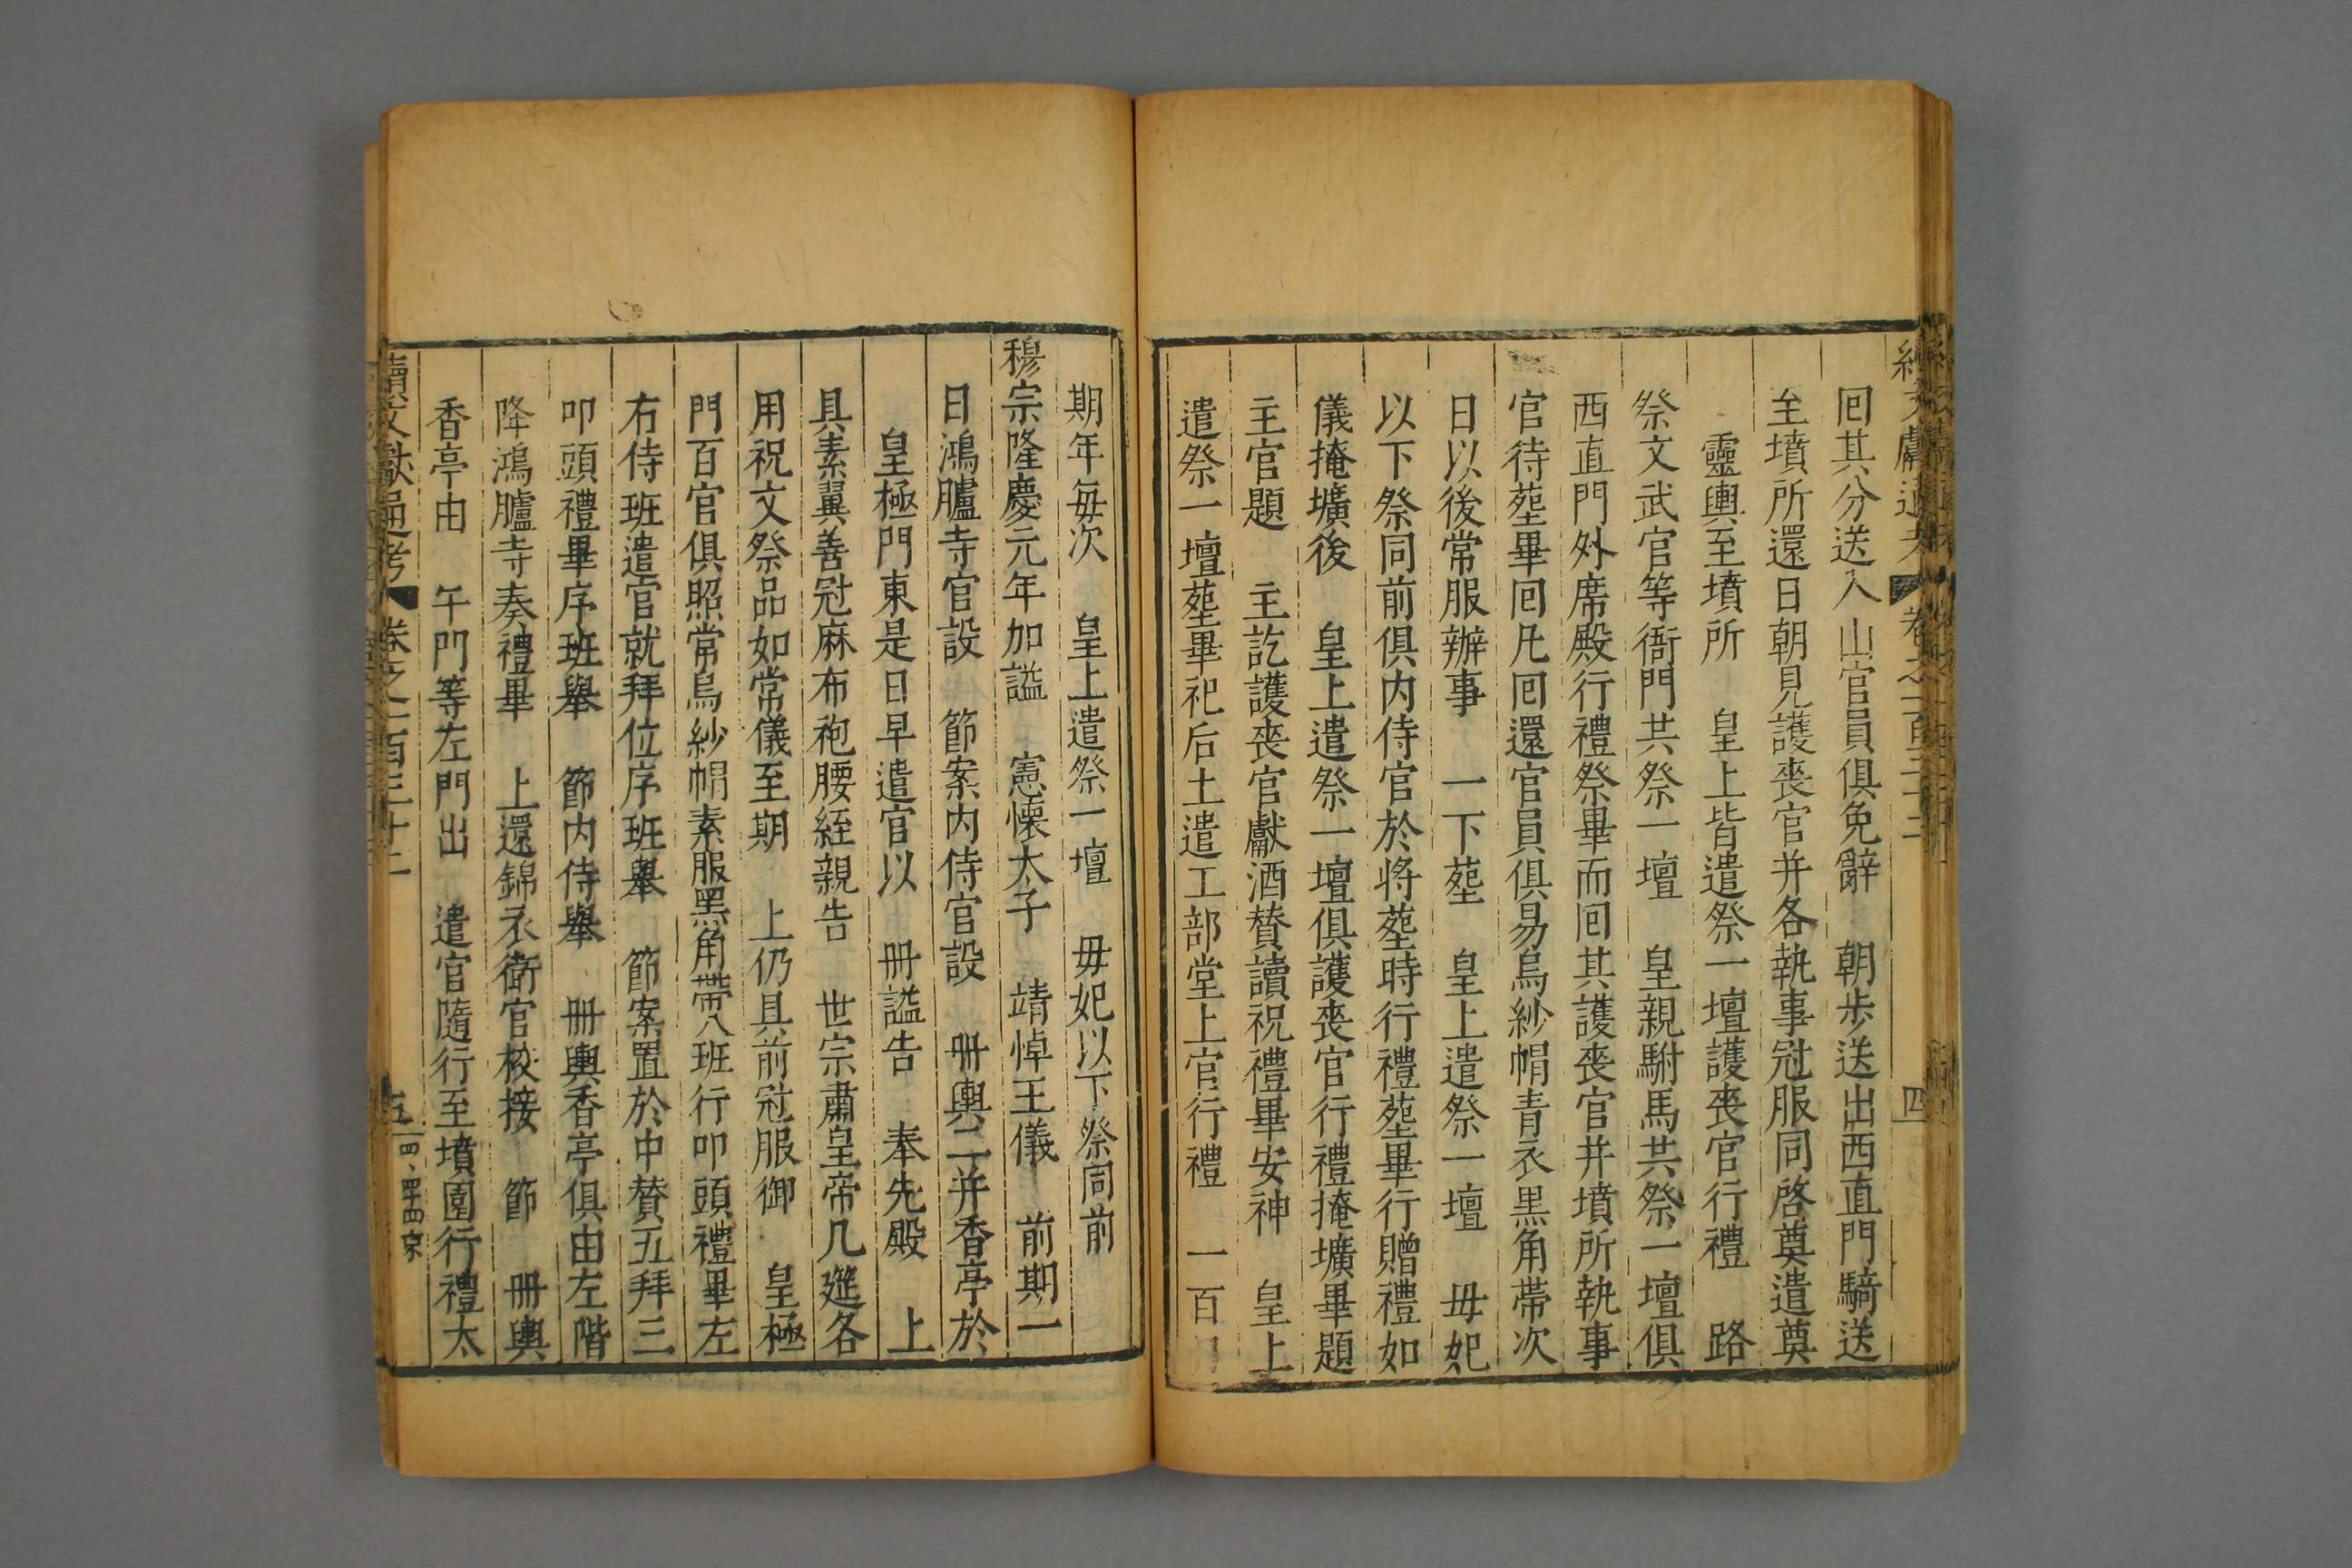 續文獻通考 卷之一百三十二 四
回其分送入山官員俱免辭 朝步送出西直門騎送
至墳所還日朝見護喪官并各執事冠服同啓奠遣奠
靈輿至墳所 皇上皆遣祭一壇護喪官行禮 路
祭文武官等衙門共祭一壇 皇親駙馬共祭一壇俱
西直門外席殿行禮祭畢而回其護喪官并墳所執事
官待塟畢回凡回還官員俱易烏紗帽青衣黑角帶次
日以後常服辦事 一下塟 皇上遣祭一壇 毋妃
以下祭同前俱内侍官於將塟時行禮塟畢行贈禮如
儀掩壙後 皇上遣祭一壇俱護喪官行禮掩壙畢題
主官題 主訖護喪官獻酒賛讀祝禮畢安神 皇上
遣祭一壇塟畢祀后土遣工部堂上官行禮 一百
期年每次 皇上遣祭一壇 毋妃以下祭同前
穆宗隆慶元年加謚 憲懷太子 靖悼王儀 前期一
日鴻臚寺官設 節案内侍官設 冊輿二并香亭於
皇極門東是日早遣官以 冊謚告 奉先殿 上
具素翼善冠麻布袍腰絰親告 世宗肅皇帝几筵各
用祝文祭品如常儀至期 上仍具前冠服御 皇極
門百官俱照常烏紗帽素服黑角帶入班行叩頭禮畢左
右侍班遣官就拜位序班舉 節案置於中賛五拜三
叩頭禮畢序班舉 節内侍舉 冊輿香亭俱由左階
降鴻臚寺奏禮畢 上還錦衣衛官校接 節 冊輿
香亭由 午門等左門出 遣官隨行至墳園行禮太
續文獻通考 卷之一百三十二 五